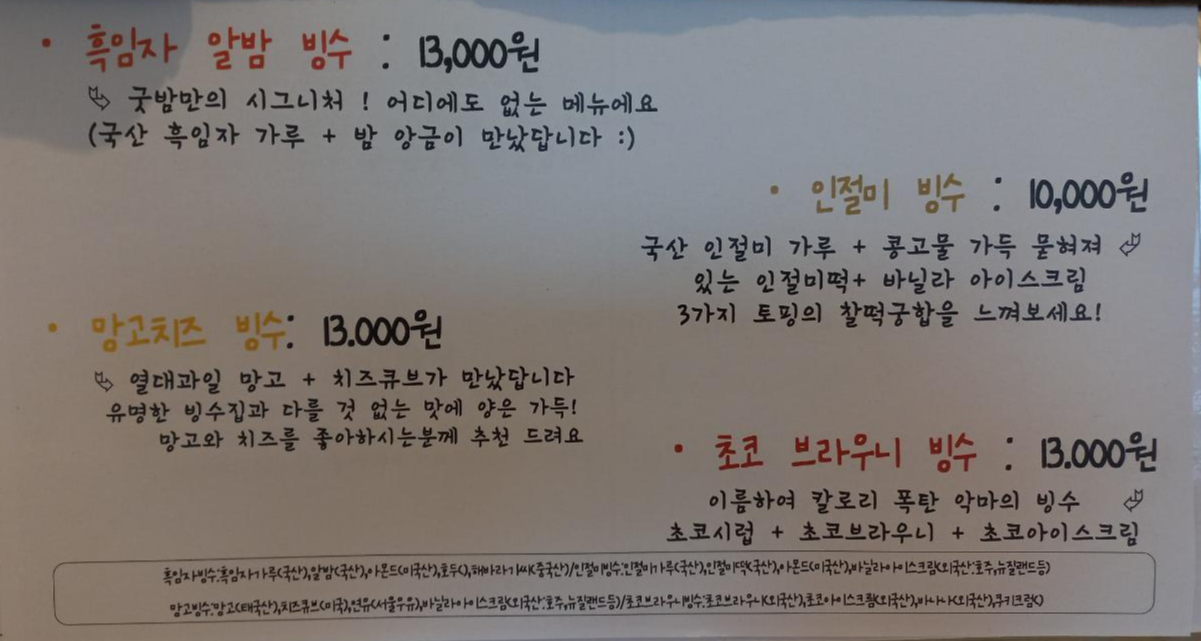 • 흑임자 알밤 빙수 : 13,000원
굿밤만의 시그니처 ! 어디에도 없는 메뉴에요
(국산 흑임자 가루 + 밤 앙금이 만났답니다 :)
• 인절미 빙수 : 10,000원
국산 인절미 가루 + 콩고물 가득 뭍혀져
있는 인절미떡+ 바닐라 아이스크림
3가지 토핑의 찰떡궁합을 느껴보세요!
• 망고치즈 빙수: 13.000원
열대과일 망고 + 치즈큐브가 만났답니다
유명한 빙수집과 다를 것 없는 맛에 양은 가득!
망고와 치즈를 좋아하시는분께 추천 드려요
• 초코 브라우니 빙수 : 13.000원
이름하여 칼로리 폭탄 악마의 빙수
초코시럽 + 초코브라우니 + 초코아이스크림
흑임자빙수:흑임자가루(국산),알밤(국산),아몬드(미국산),호두(),해바라기씨(중국산)/인절미빙수:인절미가루(국산),인절미떡(국산),아몬드(미국산),바닐라아이스크림(외국산:호주,뉴질랜드등)
망고빙수:망고(태국산),치즈큐브(미국),연유(서울우유),바닐라아이스크림(외국산:호주,뉴질랜드등)/초코브라우니빙수:초코브라우니(외국산),초코아이스크림(외국산),바나나(외국산),쿠키크럼()